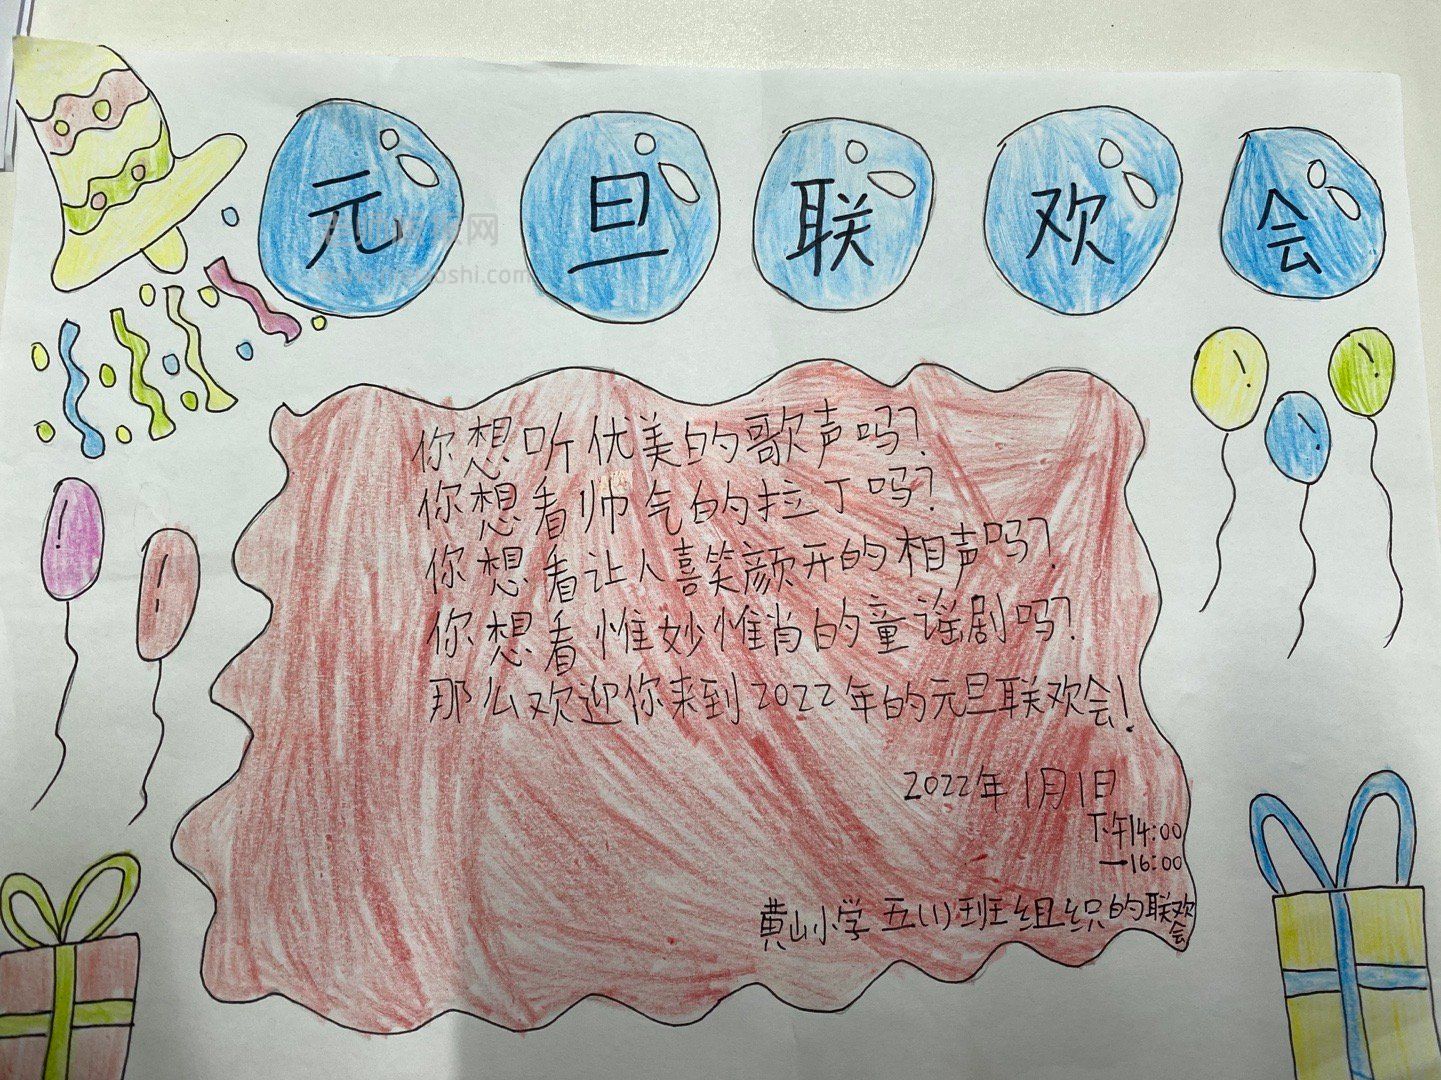 元旦联欢会
你想听优美的歌声吗?
你想看帅气的拉丁吗?
你想看让人喜笑颜开的相声吗?
你想看惟妙惟肖的童谣剧吗?
那么欢迎你来到2022年的元旦联欢会!
2022年1月1日
下午14:00
—16:00
黄山小学五(1)班组织的联欢
会